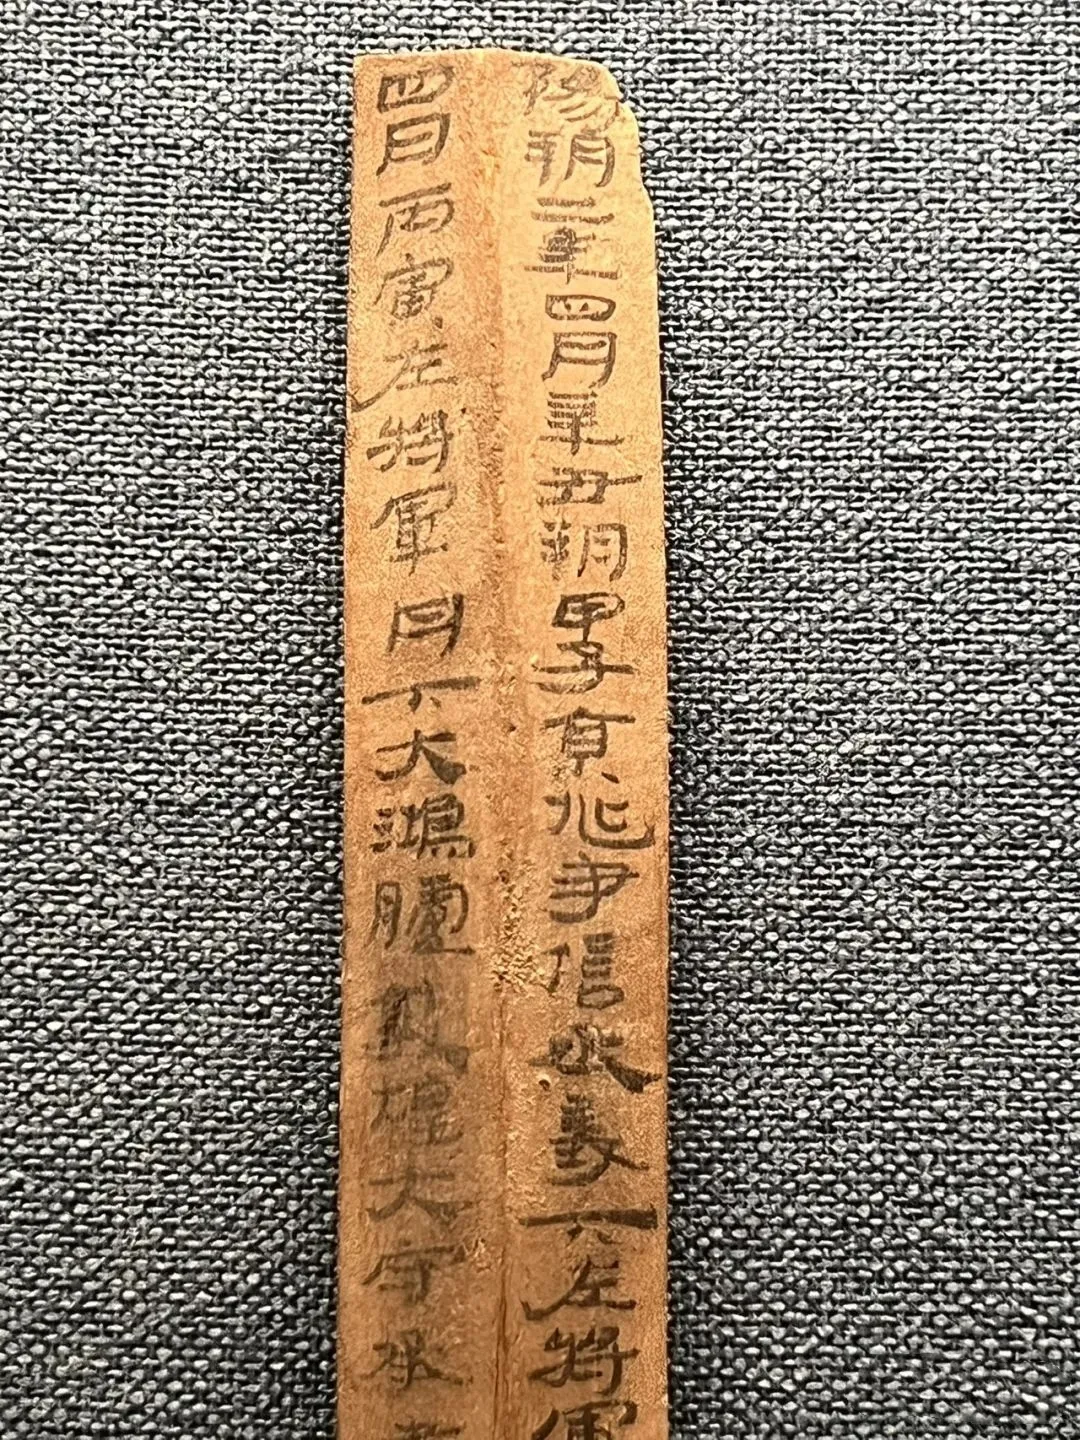 陽朔二年四月辛丑朔甲子京兆尹信丞義下左將軍
四月丙寅左將軍丹下大鴻臚敦煌大守承書